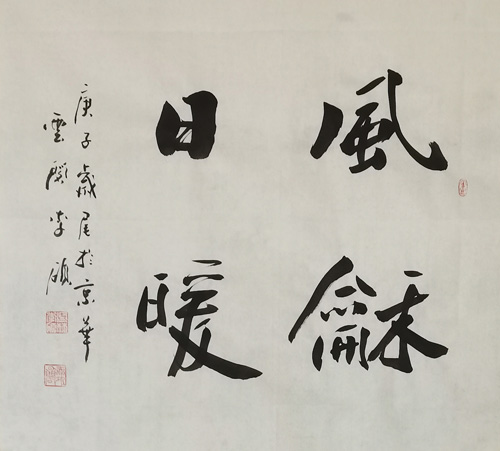 風龢
日暖
庚子歲尾於京華
雲闕李碩